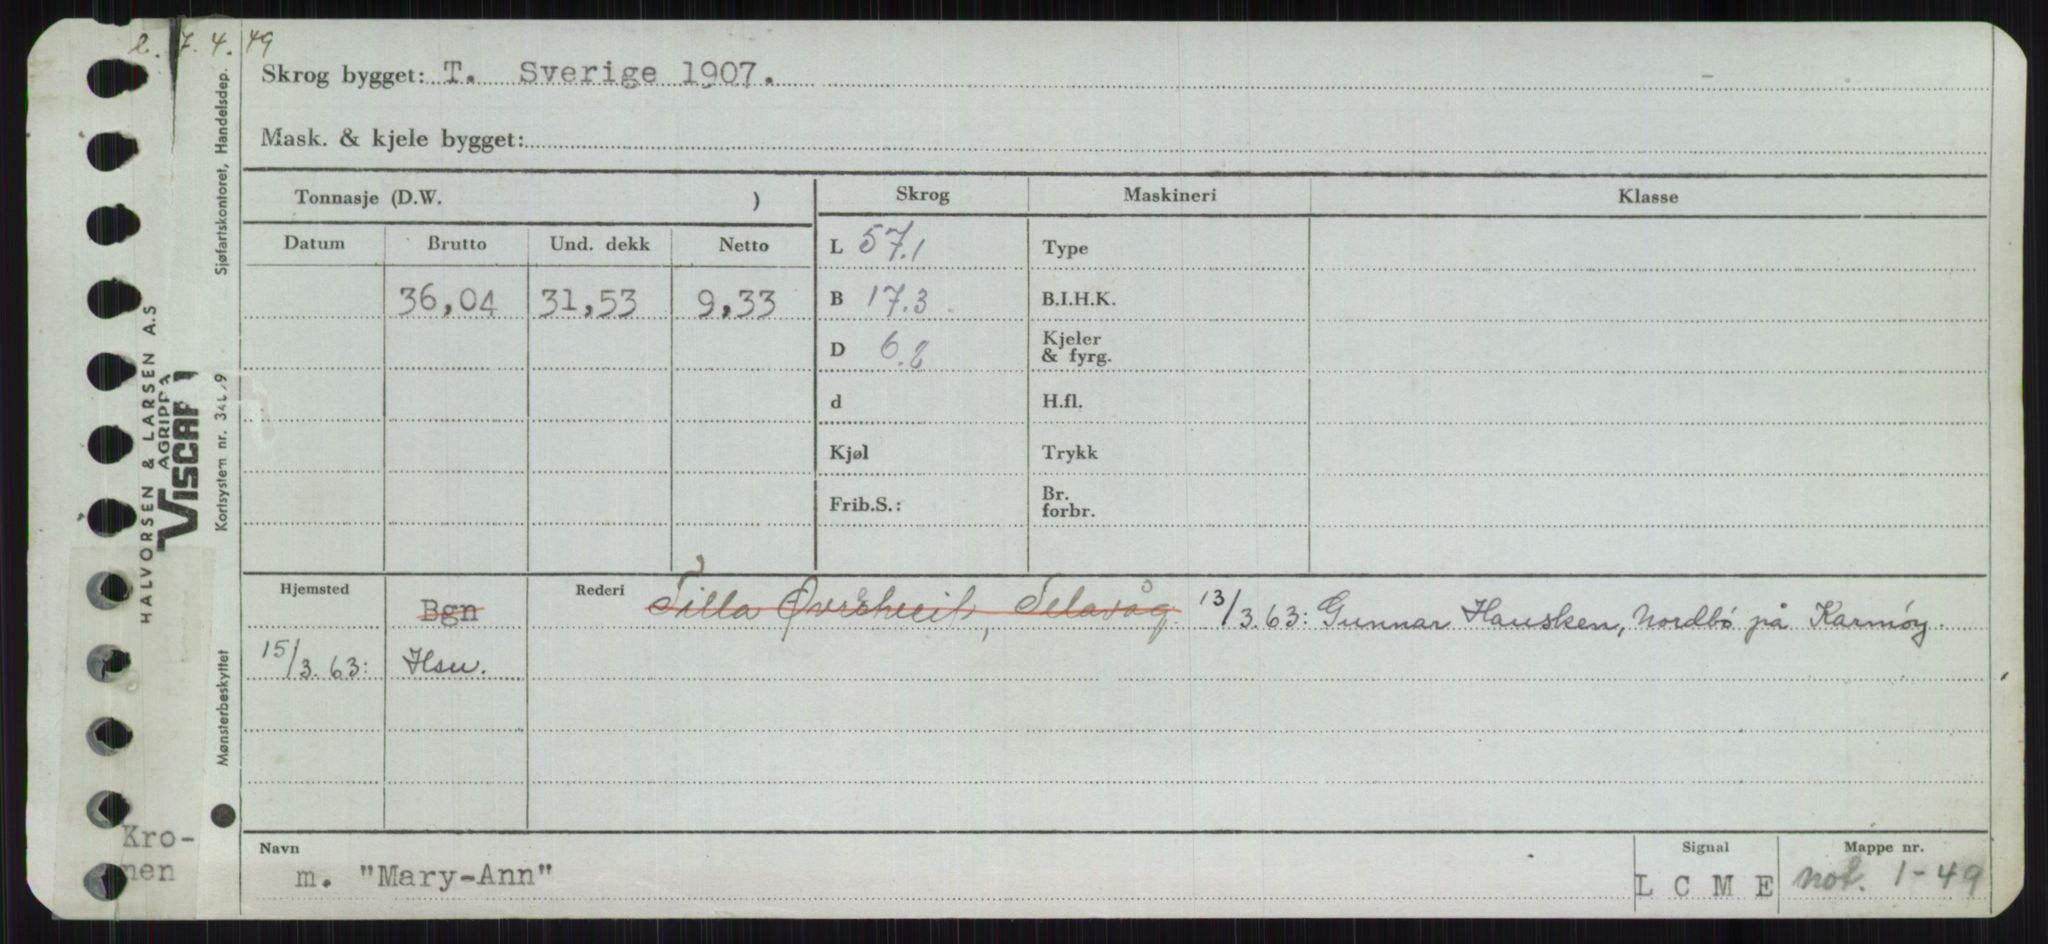 2. 7. 4. 49
Skrog bygget: T. Sverige 1907.
Mask. & kjele bygget:
Tonnasje (D.W. )
Skrog
Maskineri
Klasse
Datum
Brutto
Und. dekk
Netto
36,04
31,53
9,33
L 57.1
B 17.3
D 6.2
d
Kjøl
Frib.S.:
Type
B.I.H.K.
Kjeler
& fyrg.
H.fl.
Trykk
Br.
forbr.
Hjemsted
Bgn
Rederi
13/3.63: Gunnar Hausken, Nordbö på Karmøy.
15/3.63: Hsu.
Navn
m. "Mary-Ann"
Signal
L C M E
Mappe nr.
not. 1-49
Kro-
nen
HALVORSEN & LARSEN A.S
AGRIPPA
Viscar
Sjøfartskontoret, Handelsdep.
Kortsystem nr.
Mønsterbeskyttet